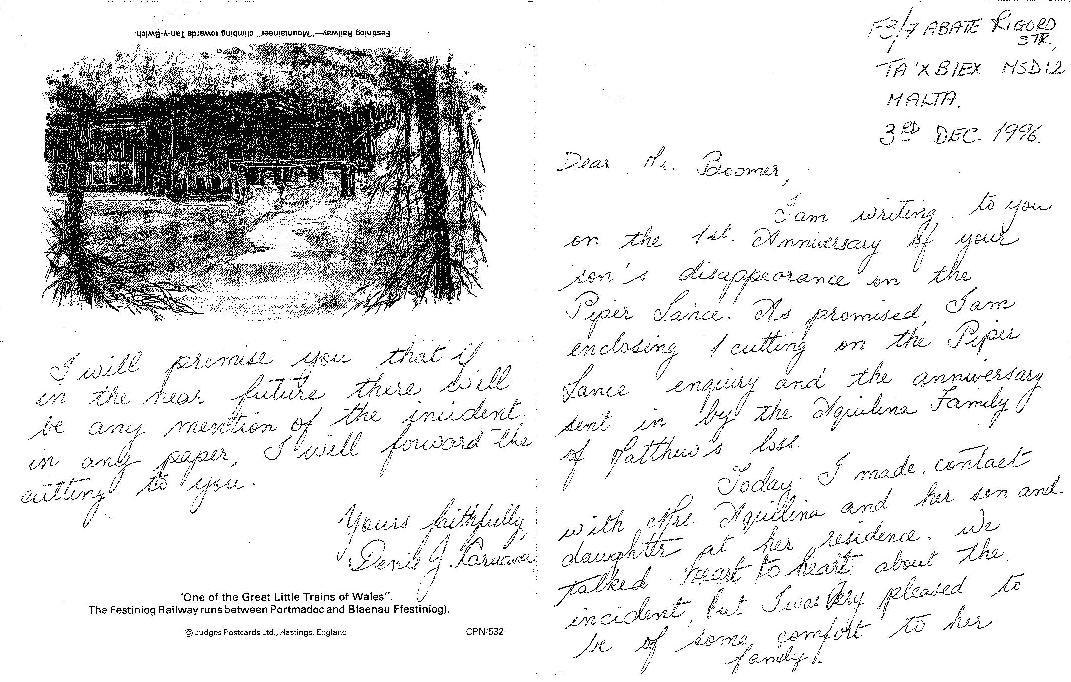 F3/7 ABATE RIGORD
STR,
TA'XBIEX MSD12
MALTA.
3RD DEC. 1996.
Dear Mr. Boomer,
I am writing to you
on the 1st. Anniversary of your
son's disappearance on the
Piper Lance. As promised, I am
enclosing 1 cutting on the Piper
Lance enquiry and the anniversary
sent in by the Aquilina Family
of Matthew's loss.
Today I made contact
with Mrs Aquilina and her son and
daughter at her residence. We
talked heart to heart about the
incident, but I was very pleased to
be of some comfort to her
family.
Festiniog Railway—"Mountaineer" climbing towards Tan-y-Bwlch.
I will promise you that if
in the near future there will
be any mention of the incident
in any paper, I will forward the
cutting to you.
Yours faithfully,
Denis J.
"One of the Great Little Trains of Wales".
The Festiniog Railway runs between Portmadoc and Blaenau Ffestiniog).
© Judges Postcards Ltd., Hastings, England
CPN 532